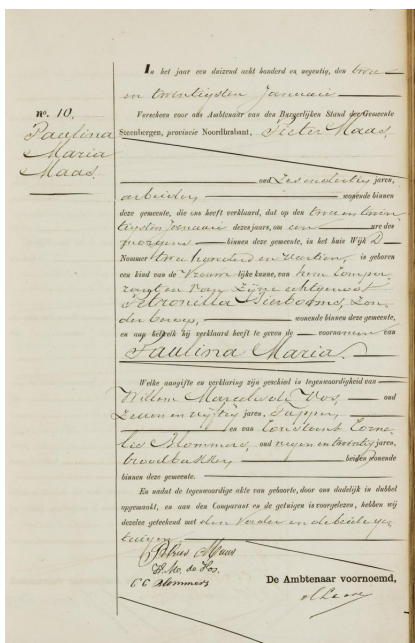 In het jaar een duizend acht honderd en negentig, den twee
en twintigsten Januari
Verscheen voor ons Ambtenaar van den Burgerlijken Stand der Gemeente
Steenbergen, provincie Noordbrabant, Pieter Maas,
n°. 10.
Paulina
Maria
Maas.
oud zesendertig jaren,
arbeider wonende binnen
deze gemeente, die ons heeft verklaard, dat op den twee en twin-
tigsten Januari dezes jaars, om een ure des
morgens binnen deze gemeente, in het huis Wijk D
Nommer twee honderd en veertien, is geboren
een kind van de Vrouwelijke kunne, van hem Compa-
rant en van zijne echtgenoot
Petronilla Bierbooms, zon-
der beroep, wonende binnen deze gemeente,
en aan hetwelk hij verklaard heeft te geven de voornamen van
Paulina Maria.
Welke aangifte en verklaring zijn geschied in tegenwoordigheid van
Willem Marcelis de Vos, oud
zeven en vijftig jaren, Tapper,
en van Constant Corne-
lis Blommers, oud negen en twintig jaren,
broodbakker, beiden wonende
binnen deze gemeente.
En nadat de tegenwoordige akte van geboorte, door ons dadelijk in dubbel
opgemaakt, en aan den Comparant en de getuigen is voorgelezen, hebben wij
dezelve geteekend met den Vader en de beide ge-
tuigen.
Maas
W. M. de Vos.
C C Blommers
De Ambtenaar voornoemd,